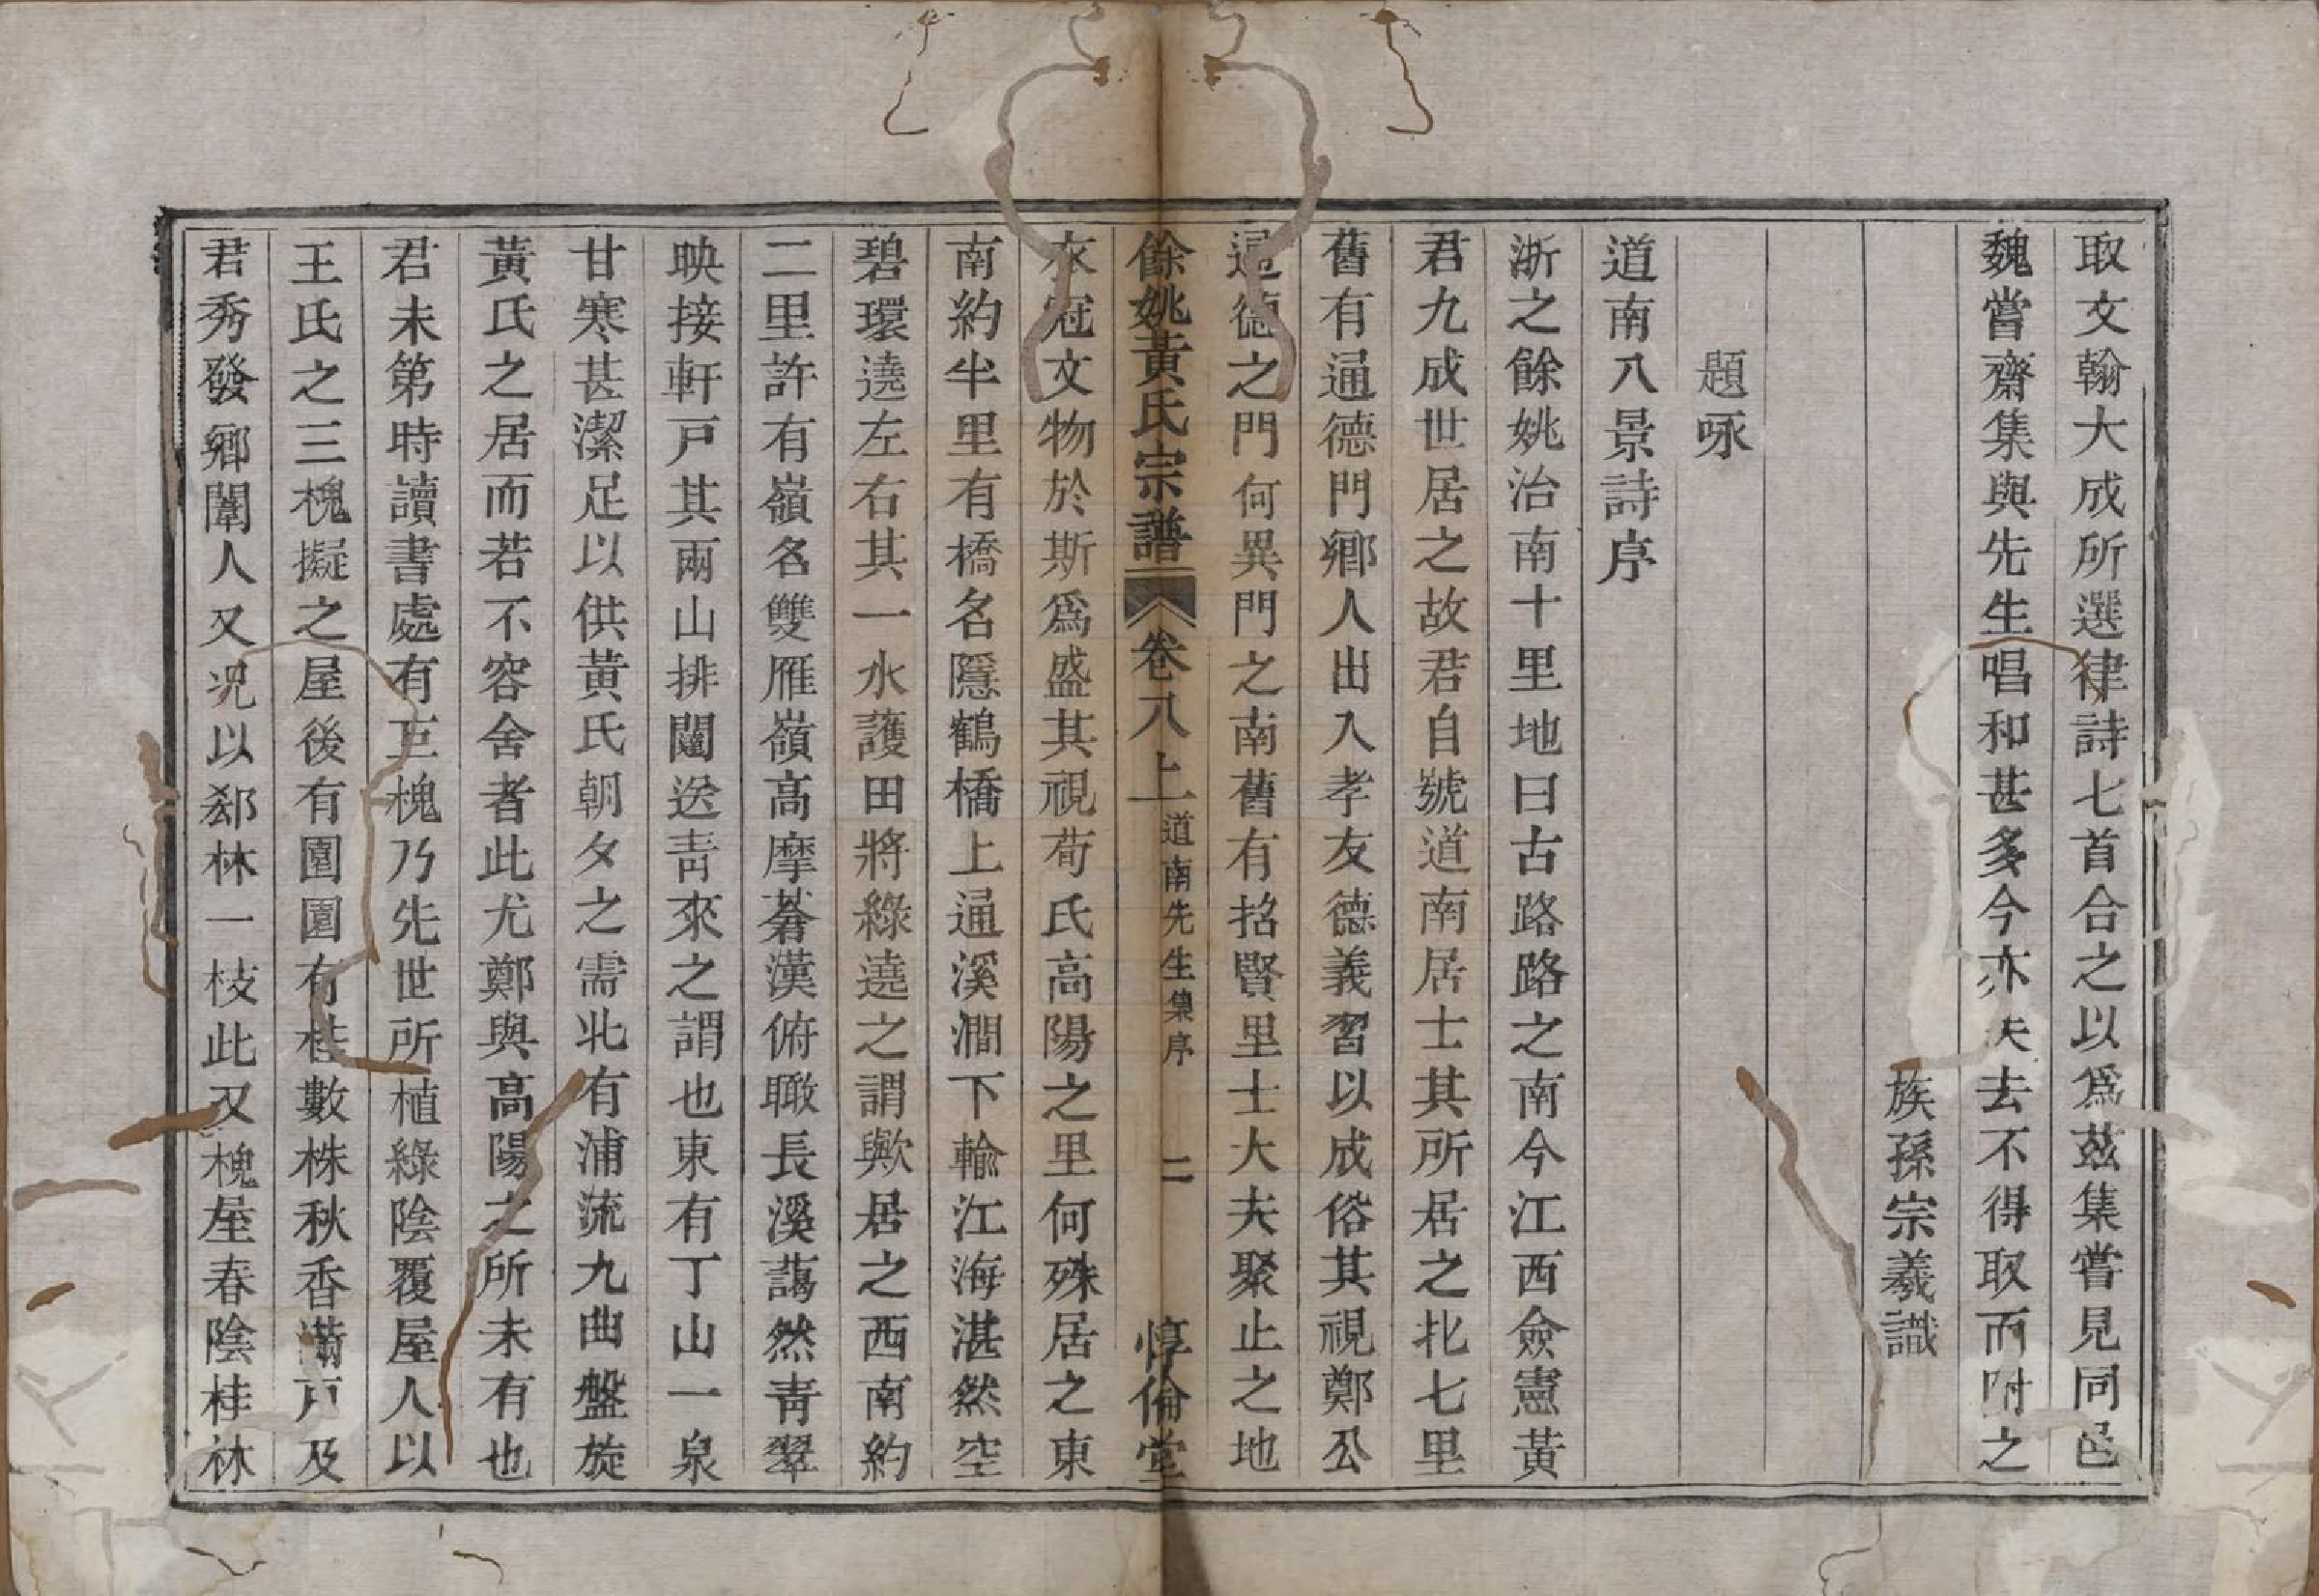 取文翰大成所選律詩七首合之以爲茲集嘗見同邑
魏嘗齋集與先生唱和甚多今亦失去不得取而附之
族孫宗羲識
題咏
道南八景詩序
浙之餘姚治南十里地曰古路路之南今江西僉憲黃
君九成世居之故君自號道南居士其所居之北七里
舊有通德門鄉人出入孝友德義習以成俗其視鄭公
通德之門何異門之南舊有招賢里士大夫聚止之地
餘姚黃氏宗譜 卷八上 道南先生集序 二 惇倫堂
衣冠文物於斯爲盛其視荀氏高陽之里何殊居之東
南約半里有橋名隱鶴橋上通溪澗下輸江海湛然空
碧環遶左右其一水護田將綠遶之謂歟居之西南約
二里許有嶺名雙雁嶺高摩碧漢俯瞰長溪藹然青翠
映接軒戸其兩山排闥送青來之謂也東有丁山一泉
甘寒甚潔足以供黃氏朝夕之需北有浦流九曲盤旋
黃氏之居而若不容舍者此尤鄭與高陽之所未有也
君未第時讀書處有互槐乃先世所植綠陰覆屋人以
王氏之三槐擬之屋後有園園有桂數株秋香滿戸及
君秀發鄉闈人又况以郄林一枝此又槐屋春陰桂林